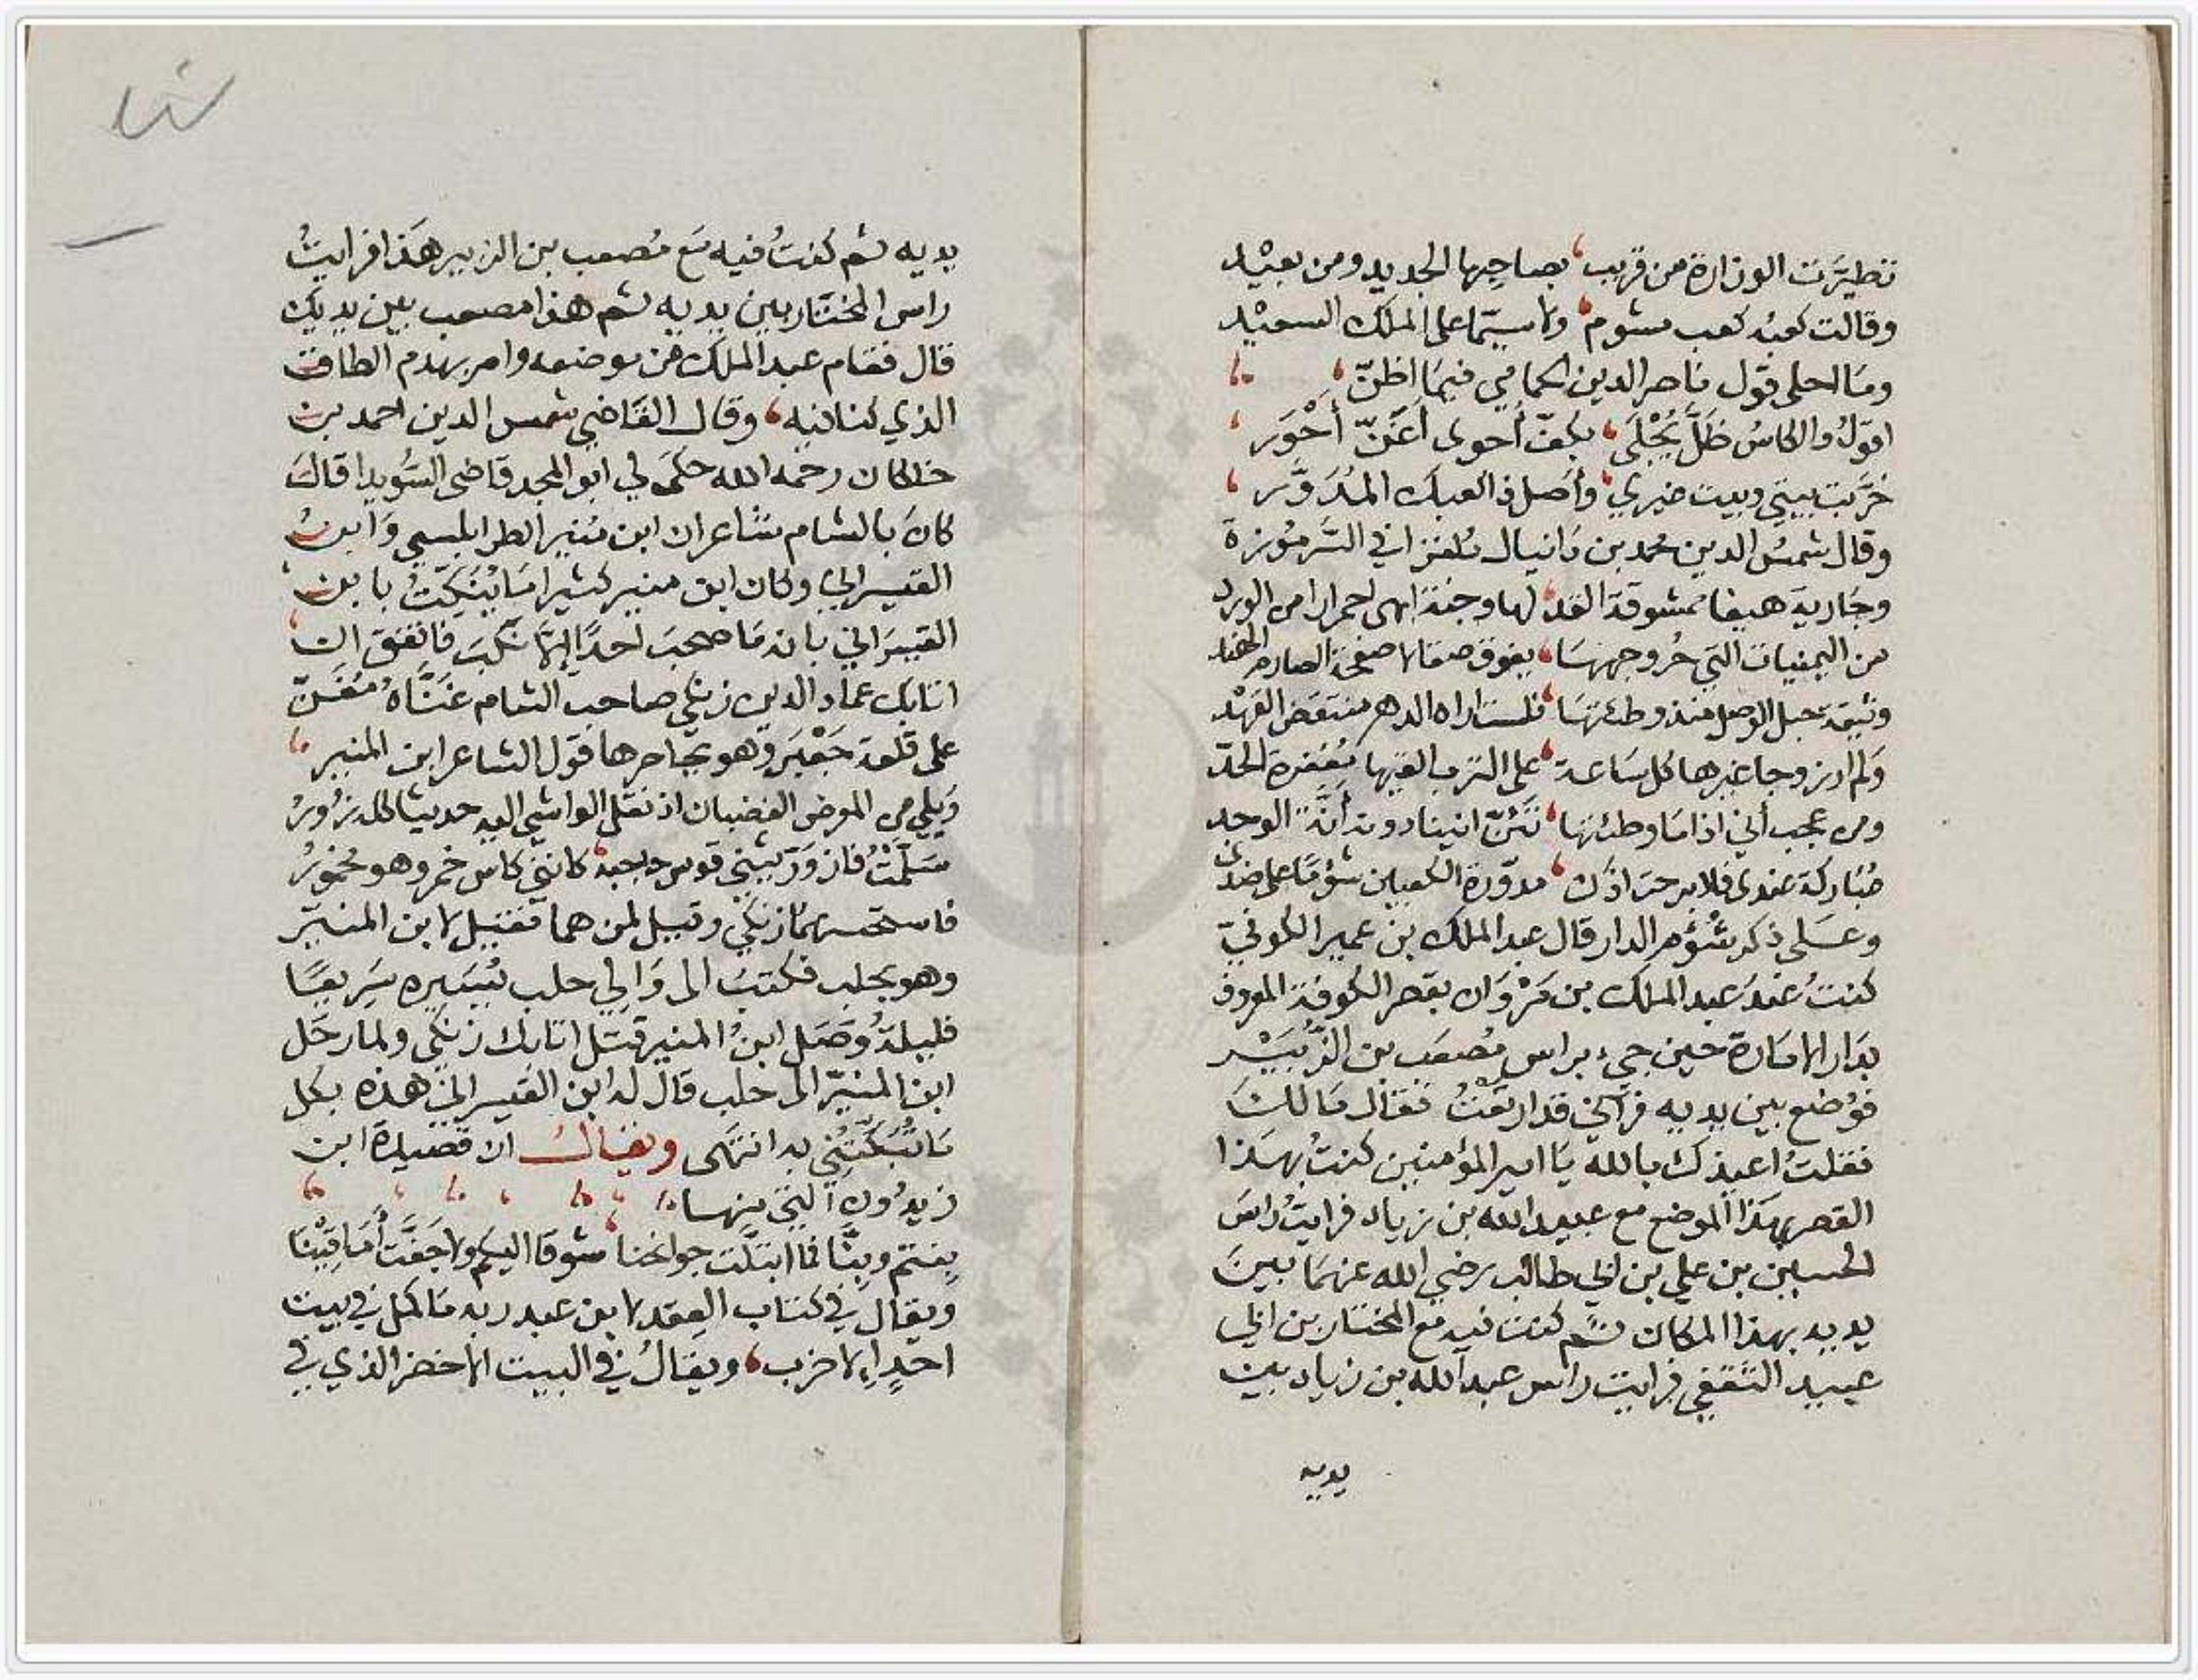 تطيرت الوزارة من قريب، بصاحبها الجديد ومن بعيد
وقالت كعبه كعب مشوم، ولا سيما على الملك السعيد
وما احلى قول ناصر الدين الحمامي فيما اظن
اقول والكاس ظل يجلى، بكف أحوى أغن أحور
خربت بيتي وبيت غيري، وأصل ذا لعبك المدور
وقال شمس الدين محمد بن دانيال ملغزا في السرموزة
وجارية هيفا ممشوقة القد، لها وجنة ابهى احمرارا من الورد
من اليمنيات التي حر وجهها، يفوق صقالا صفحة الصارم الهند
وثيقة حبل الوصل منذ وطئتها، فلست اراه الدهر منتقض العهد
ولم ار زوجا غيرها كل ساعة، على الترب القيها معفرة الخد
ومن عجب أني اذا ما وطئتها، تئن انينا دونه أنة الوجد
مباركة عندي فلا برحت اذن، مدورة الكعبين شؤما على ضدي
وعلى ذكر شؤم الدار قال عبد الملك بن عمير الكوفي
كنت عند عبد الملك بن مروان بقصر الكوفة المعروف
بدار الامارة حين جيء براس مصعب بن الزبير
فوضع بين يديه فرآني قد ارتعت فقال مالك
فقلت اعيذك بالله يا امير المؤمنين كنت بهذا
القصر بهذا الموضع مع عبيد الله بن زياد فرايت راس
الحسين بن علي بن ابي طالب رضي الله عنهما بين
يديه بهذا المكان ثم كنت فيه مع المختار بن ابي
عبيد الثقفي فرايت راس عبد الله بن زياد بين
يديه
يديه ثم كنت فيه مع مصعب بن الزبير هذا فرايت
راس المختار بين يديه ثم هذا مصعب بين يديك
قال فقام عبد الملك من موضعه وامر بهدم الطاق
الذي كنا فيه، وقال القاضي شمس الدين احمد بن
خلكان رحمه الله حكى لي ابو المجد قاضي السويدا قال
كان بالشام شاعران ابن منير الطرابلسي وابن
القيسراني وكان ابن منير كثيرا ما يبكت بابن
القيسراني بانه ما صحب احدا الا نكب فاتفق ان
اتابك عماد الدين زنكي صاحب الشام غناه مغن
على قلعة جعبر وهو يحاصرها قول الشاعر ابن المنير
ويلي من المعرض الغضبان اذ نقل الواشي اليه حديثا كله زور
سلمت فازور يثني قوس حاجبه، كانني كاس خمر وهو مخمور
فاستحسنهما زنكي وقيل لمن هما فقيل لابن المنير
وهو بحلب فكتب الى والي حلب يسيره سريعا
فليلة وصل ابن المنير قتل اتابك زنكي ولما رحل
ابن المنير الى حلب قال له ابن القيسراني هذه بكل
ما تبكتني به انتهى ويقال ان قصيدة ابن
زيدون التي منها
بنتم وبنا فما ابتلت جوانحنا، شوقا اليكم ولا جفت أماقينا
ويقال في كتاب العقد لابن عبد ربه ما كمل في بيت
احد الا خرب، ويقال في البيت الاخضر الذي في